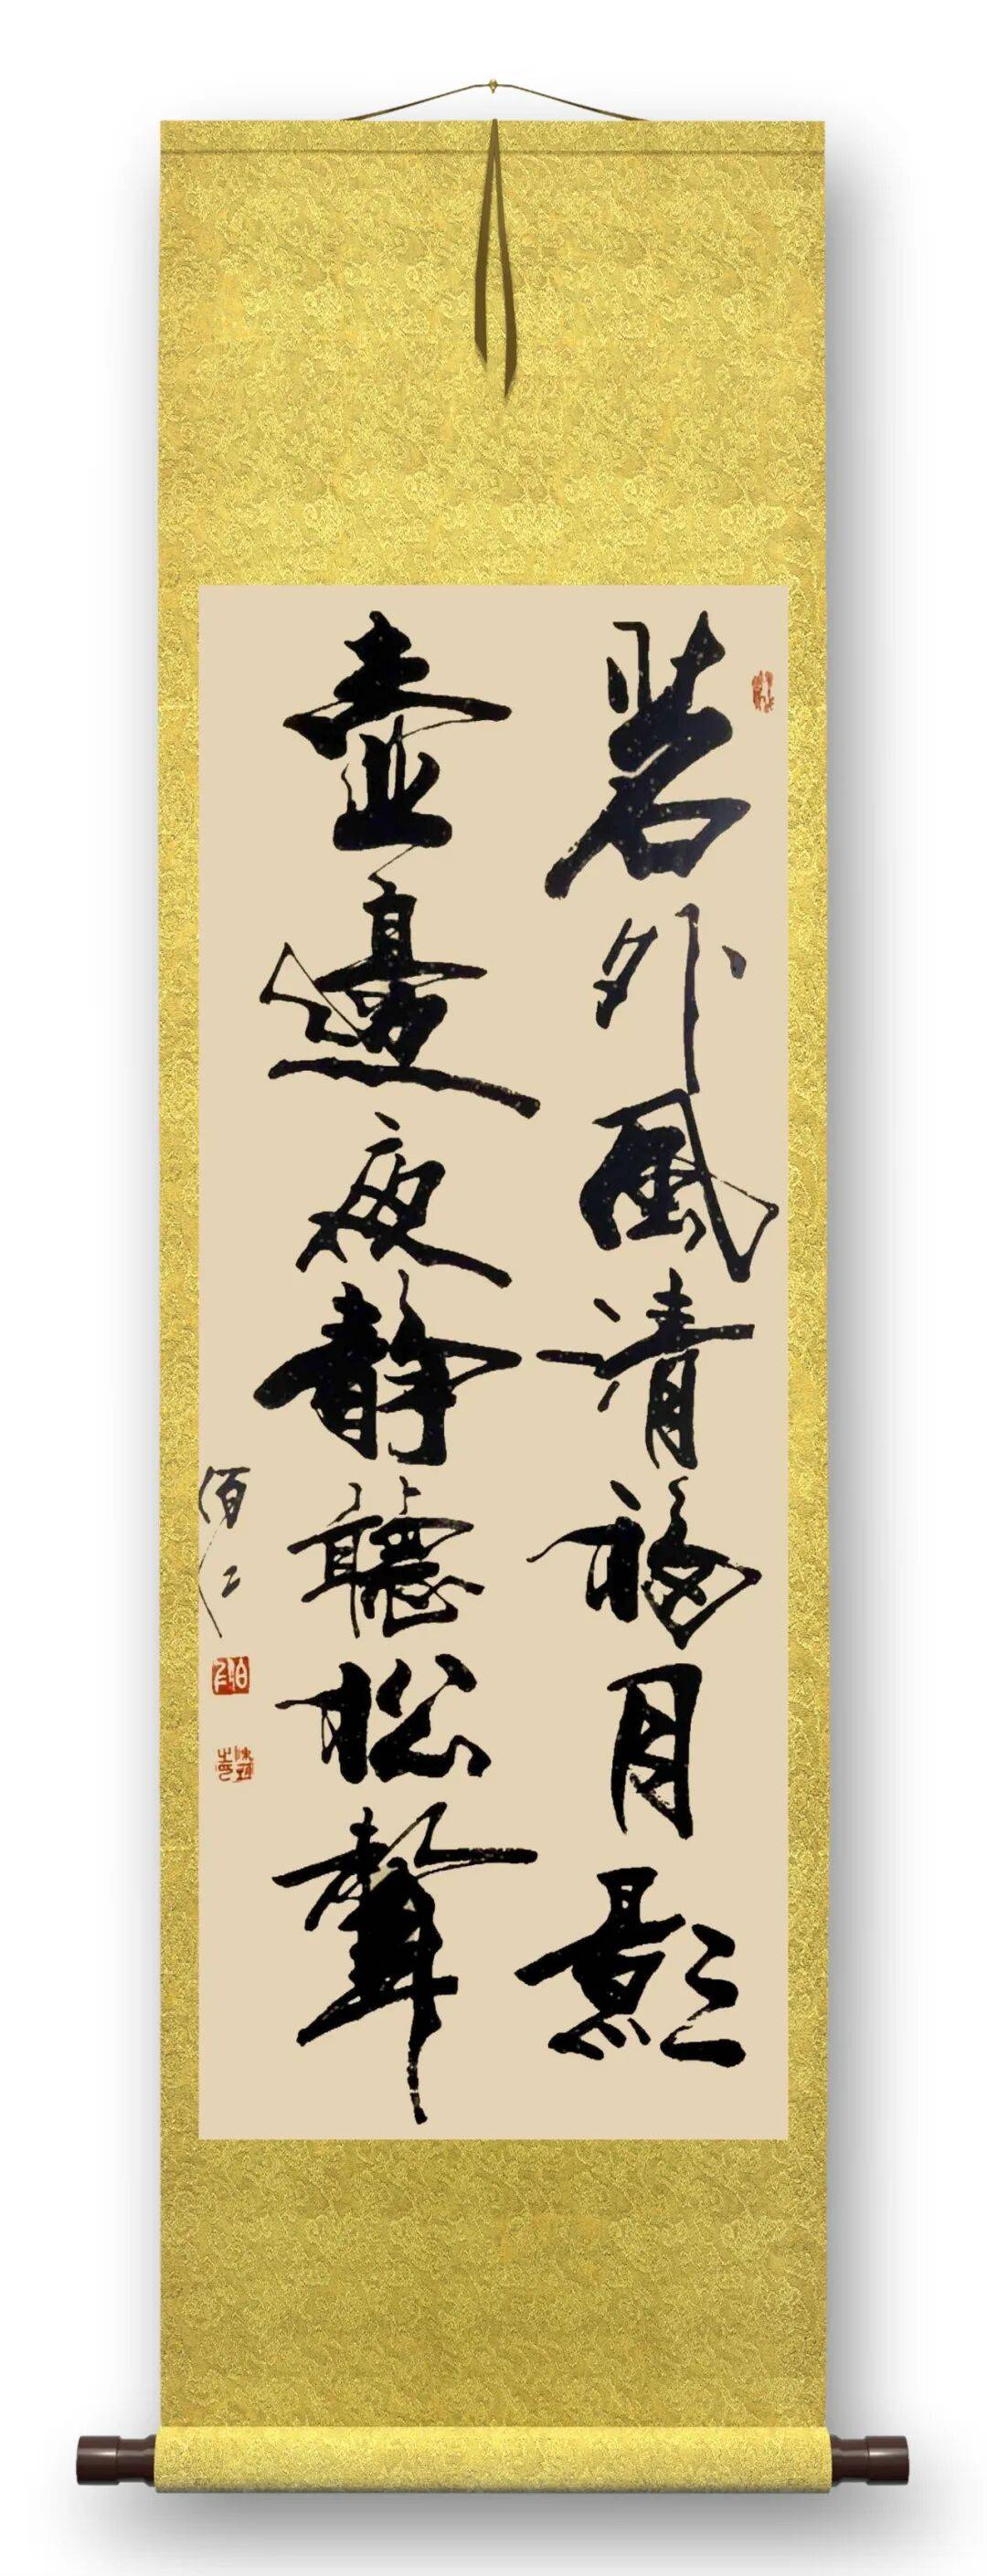 茗外風清移月影
壺邊夜靜聽松聲
佰仁